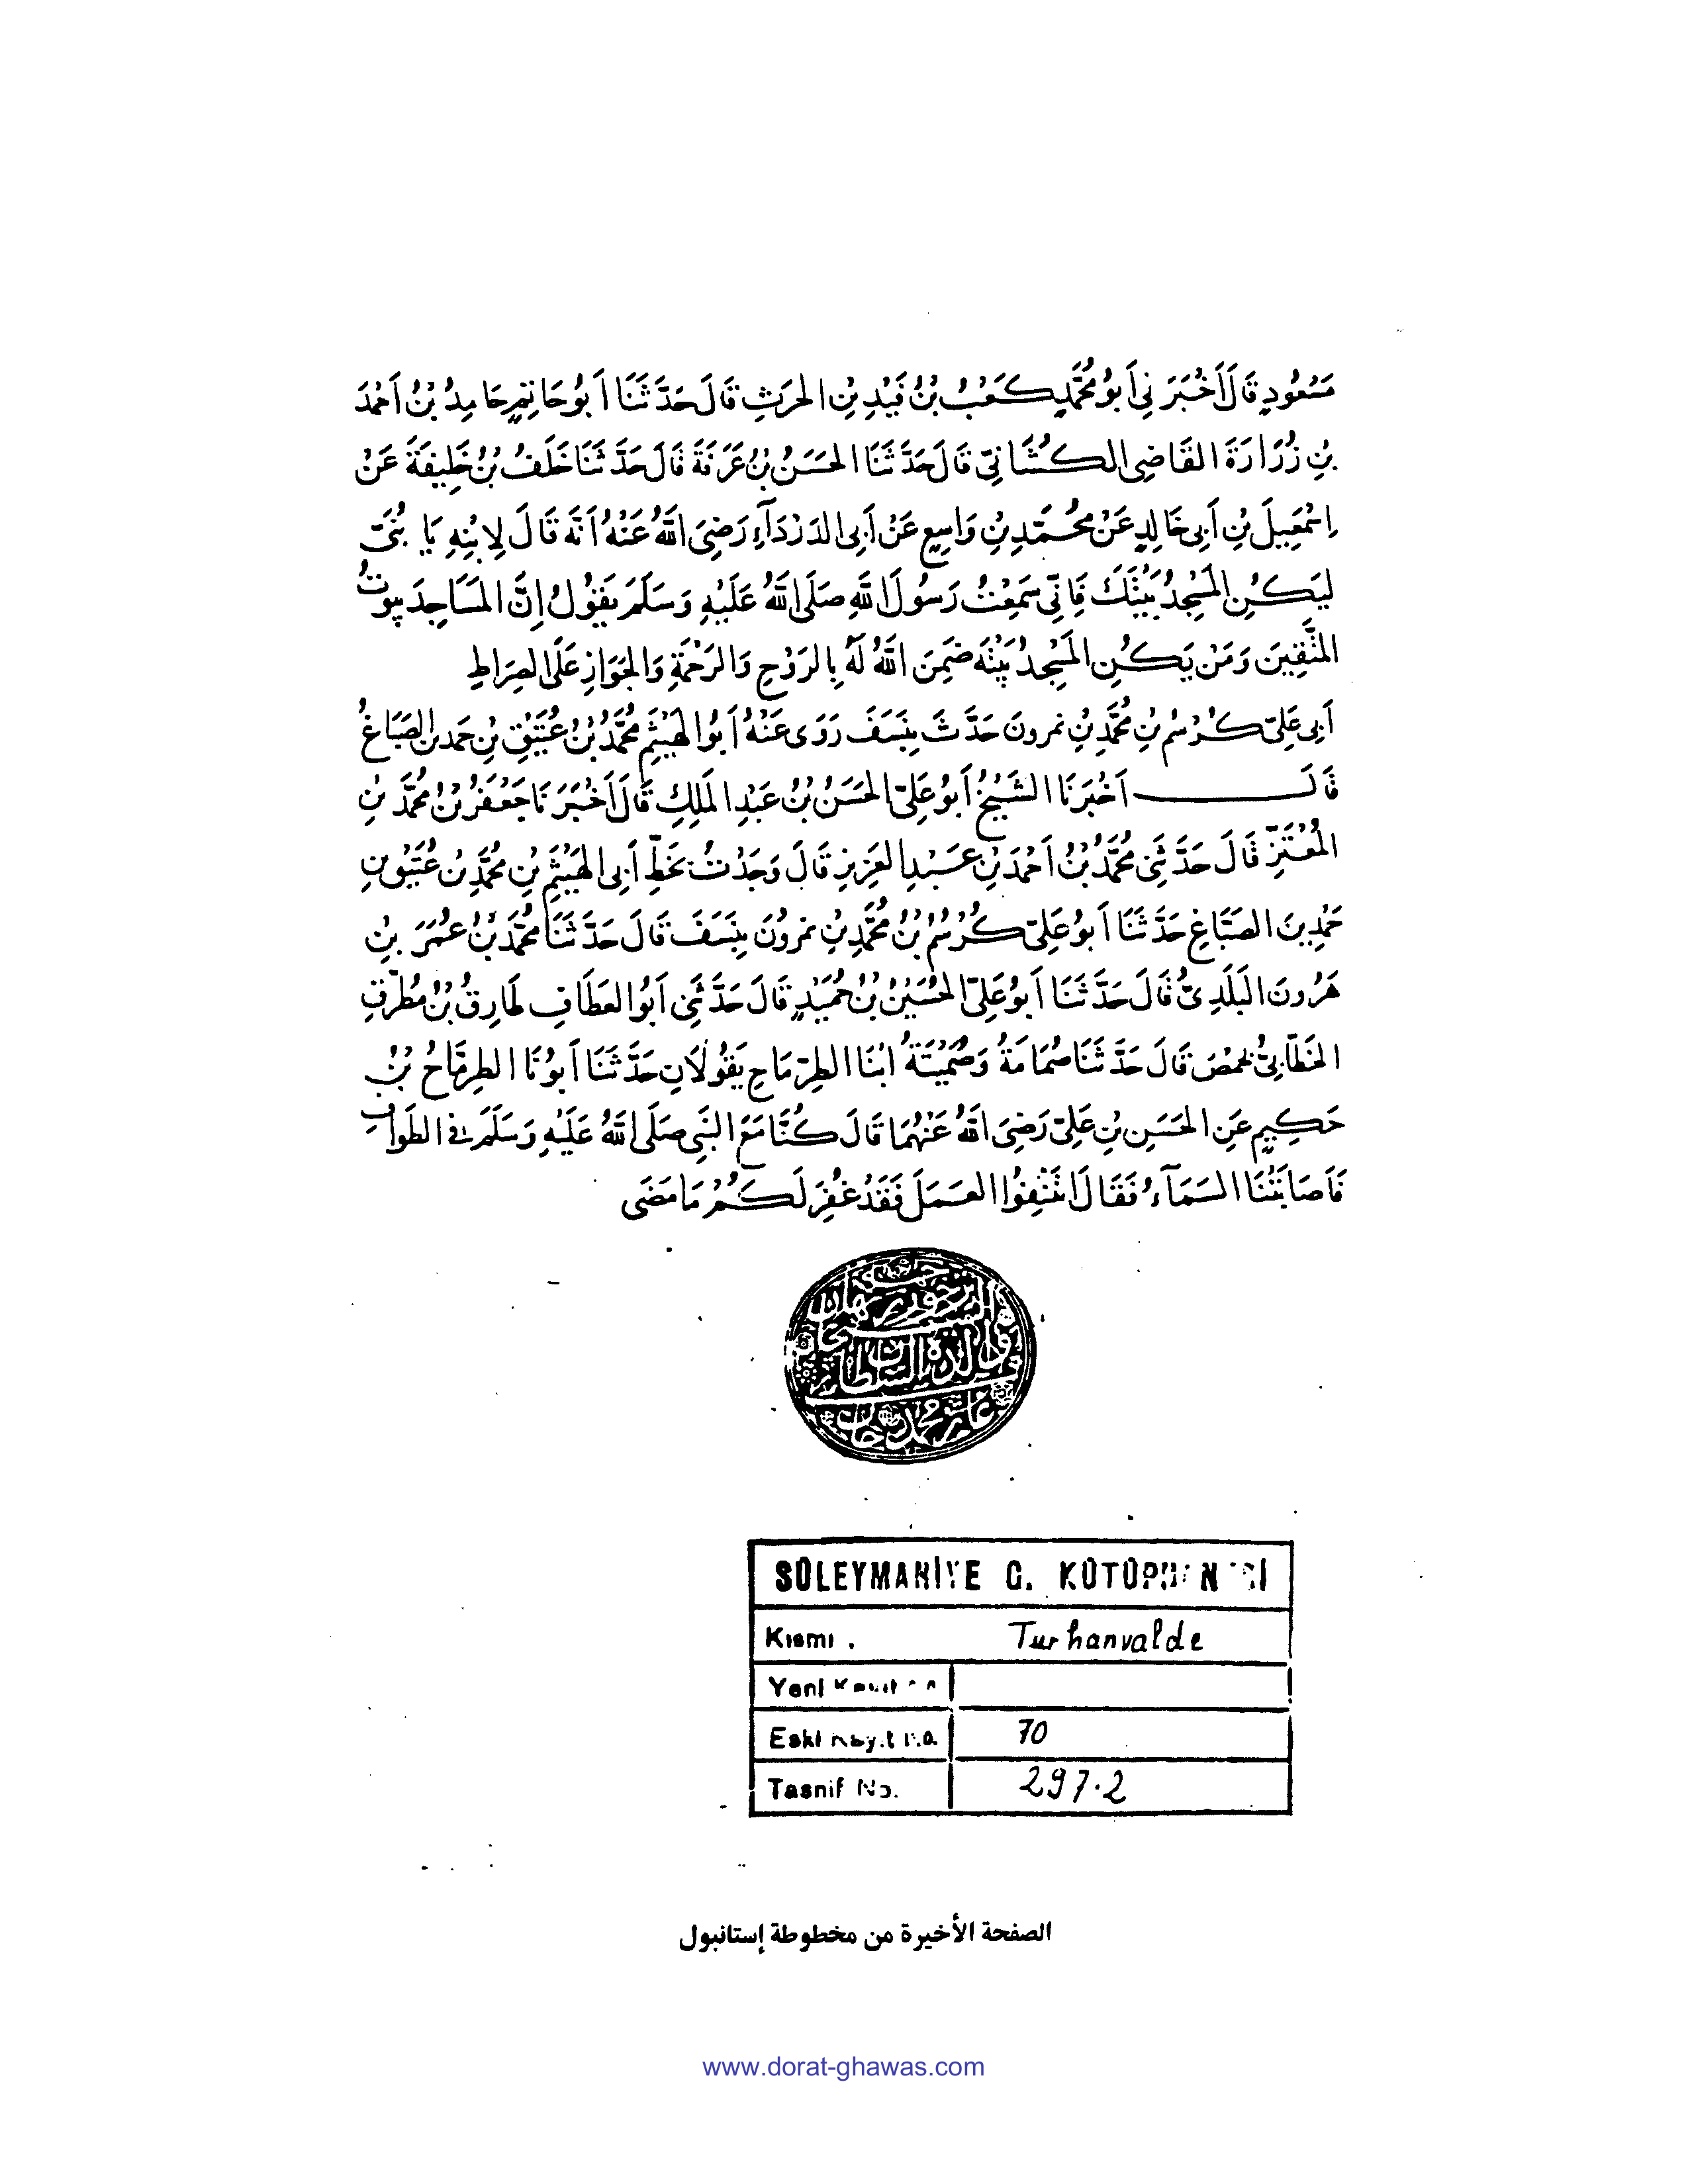 مَسْعُودٍ قَالَ أَخْبَرَنِي أَبُو مُحَمَّدٍ كَعْبُ بْنُ قَيْدِ بْنِ الحَرثِ قَالَ حَدَّثَنَا أَبُو حَاتِمٍ حَامِدُ بْنُ أَحْمَدَ
بْنِ زُرَارَةَ القَاضِي الكُشَانِيّ قَالَ حَدَّثَنَا الحَسَنُ بْنُ عَرَفَةَ قَالَ حَدَّثَنَا خَلَفُ بْنُ خَلِيفَةَ عَنْ
اِسْمَعِيلَ بْنِ أَبِي خَالِدٍ عَنْ مُحَمَّدِ بْنِ وَاسِعٍ عَنْ أَبِي الدَرْدَآءِ رَضِيَ اللَّهُ عَنْهُ أَنَّهُ قَالَ لِابْنِهِ يَا بُنَيَّ
لِيَكُنِ المَسْجِدُ بَيْتَكَ فَإِنِّي سَمِعْتُ رَسُولَ اللَّهِ صَلَى اللَّهُ عَلَيْهِ وَسَلَمَ يَقُولُ إِنَّ المَسَاجِدَ بيوتُ
المتَّقِينَ وَمَنْ يَكُنِ المَسْجِدُ بَيْتَهُ ضَمِنَ اللَّهُ لَهُ بِالرَوْحِ وَالرَحْمَةِ وَالجَوَازِ عَلَى الصِرَاطِ
أَبِي عَلِيّ كُرْسُمِ بْنِ مُحَمَّدِ بْنِ نمرون حَدَّثَ بِنَسَفَ رَوَى عَنْهُ أَبُو الهَيْثَمِ مُحَمَّدُ بْنُ عُتَيْقِ بْنِ حَمدِ بن الصَبَاغُ
قَالَ أَخْبَرَنَا الشَيْخُ أَبُو عَلِيّ الحَسَنُ بْنُ عَبْدِ المَلِكِ قَالَ أَخْبَرَنَا جَعْفَرُ بْنُ مُحَمَّدِ بْنِ
المُعْتَزِّ قَالَ حَدَّثَنِي مُحَمَّدُ بْنُ أَحْمَدَ بْنِ عَبْدِ العَزِيزِ قَالَ وَجَدْتُ بخَطِّ أَبِي الهَيْثَمِ بْنِ مُحَمَّدِ بْنِ عُتَيْقِ بنِ
حَمْدِ بنَ الصَبَّاغِ حَدَّثَنَا أَبُو عَلِيّ كُرْسُمُ بْنُ مُحَمَّدِ بْنِ نمرُونَ بِنَسَفَ قَالَ حَدَّثَنَا مُحَمَّدُ بْنُ عُمَرَ بْنِ
هَرُونَ البَلَدِيُّ قَالَ حَدَّثَنَا أَبُو عَلِيّ الحُسَيْنُ بْنُ حُمَيْدٍ قَالَ حَدَّثَنِي أَبُو العَطَافِ طَارِقُ بْنُ مُطَرِّقِ
الخَطَّابِيُّ بحمْصَ قَالَ حَدَّثَنَا صُمَامَةُ وَصُمَيْتَةُ ابْنَا الطِرِمَاحِ يَقُولَانِ حَدَّثَنَا أَبُونَا الطِرِمَّاحُ بْنُ
حَكِيمٍ عَنِ الحَسَنِ بْنِ عَلِيّ رَضِيَ اللَّهُ عَنْهُمَا قَالَ كُنَّا مَعَ النَبِيِ صَلَى اللَّهُ عَلَيْهِ وَسَلَمَ فِي الطَوَافِ
فَأَصَابَتْنَا السَمَآءُ فَقَالَ ائْتَنِفُوا العَمَلَ فَقَدْ غُفِرَ لَكُمْ مَا مَضَى
والدة السلطان
محمد خان
SÜLEYMANİYE G. KÜTÜPHANESİ
Kısmı . Turhanvalde
Yeni Kayıt No
Eski Kayıt No. 70
Tasnif No. 297.2
الصفحة الأخيرة من مخطوطة إستانبول
www.dorat-ghawas.com